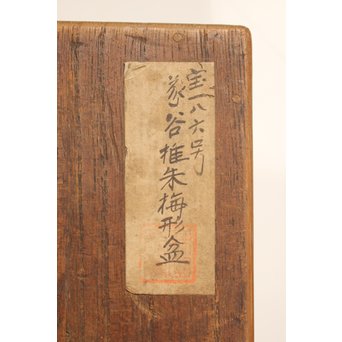 宝一八六号
彖谷椎朱梅形盆